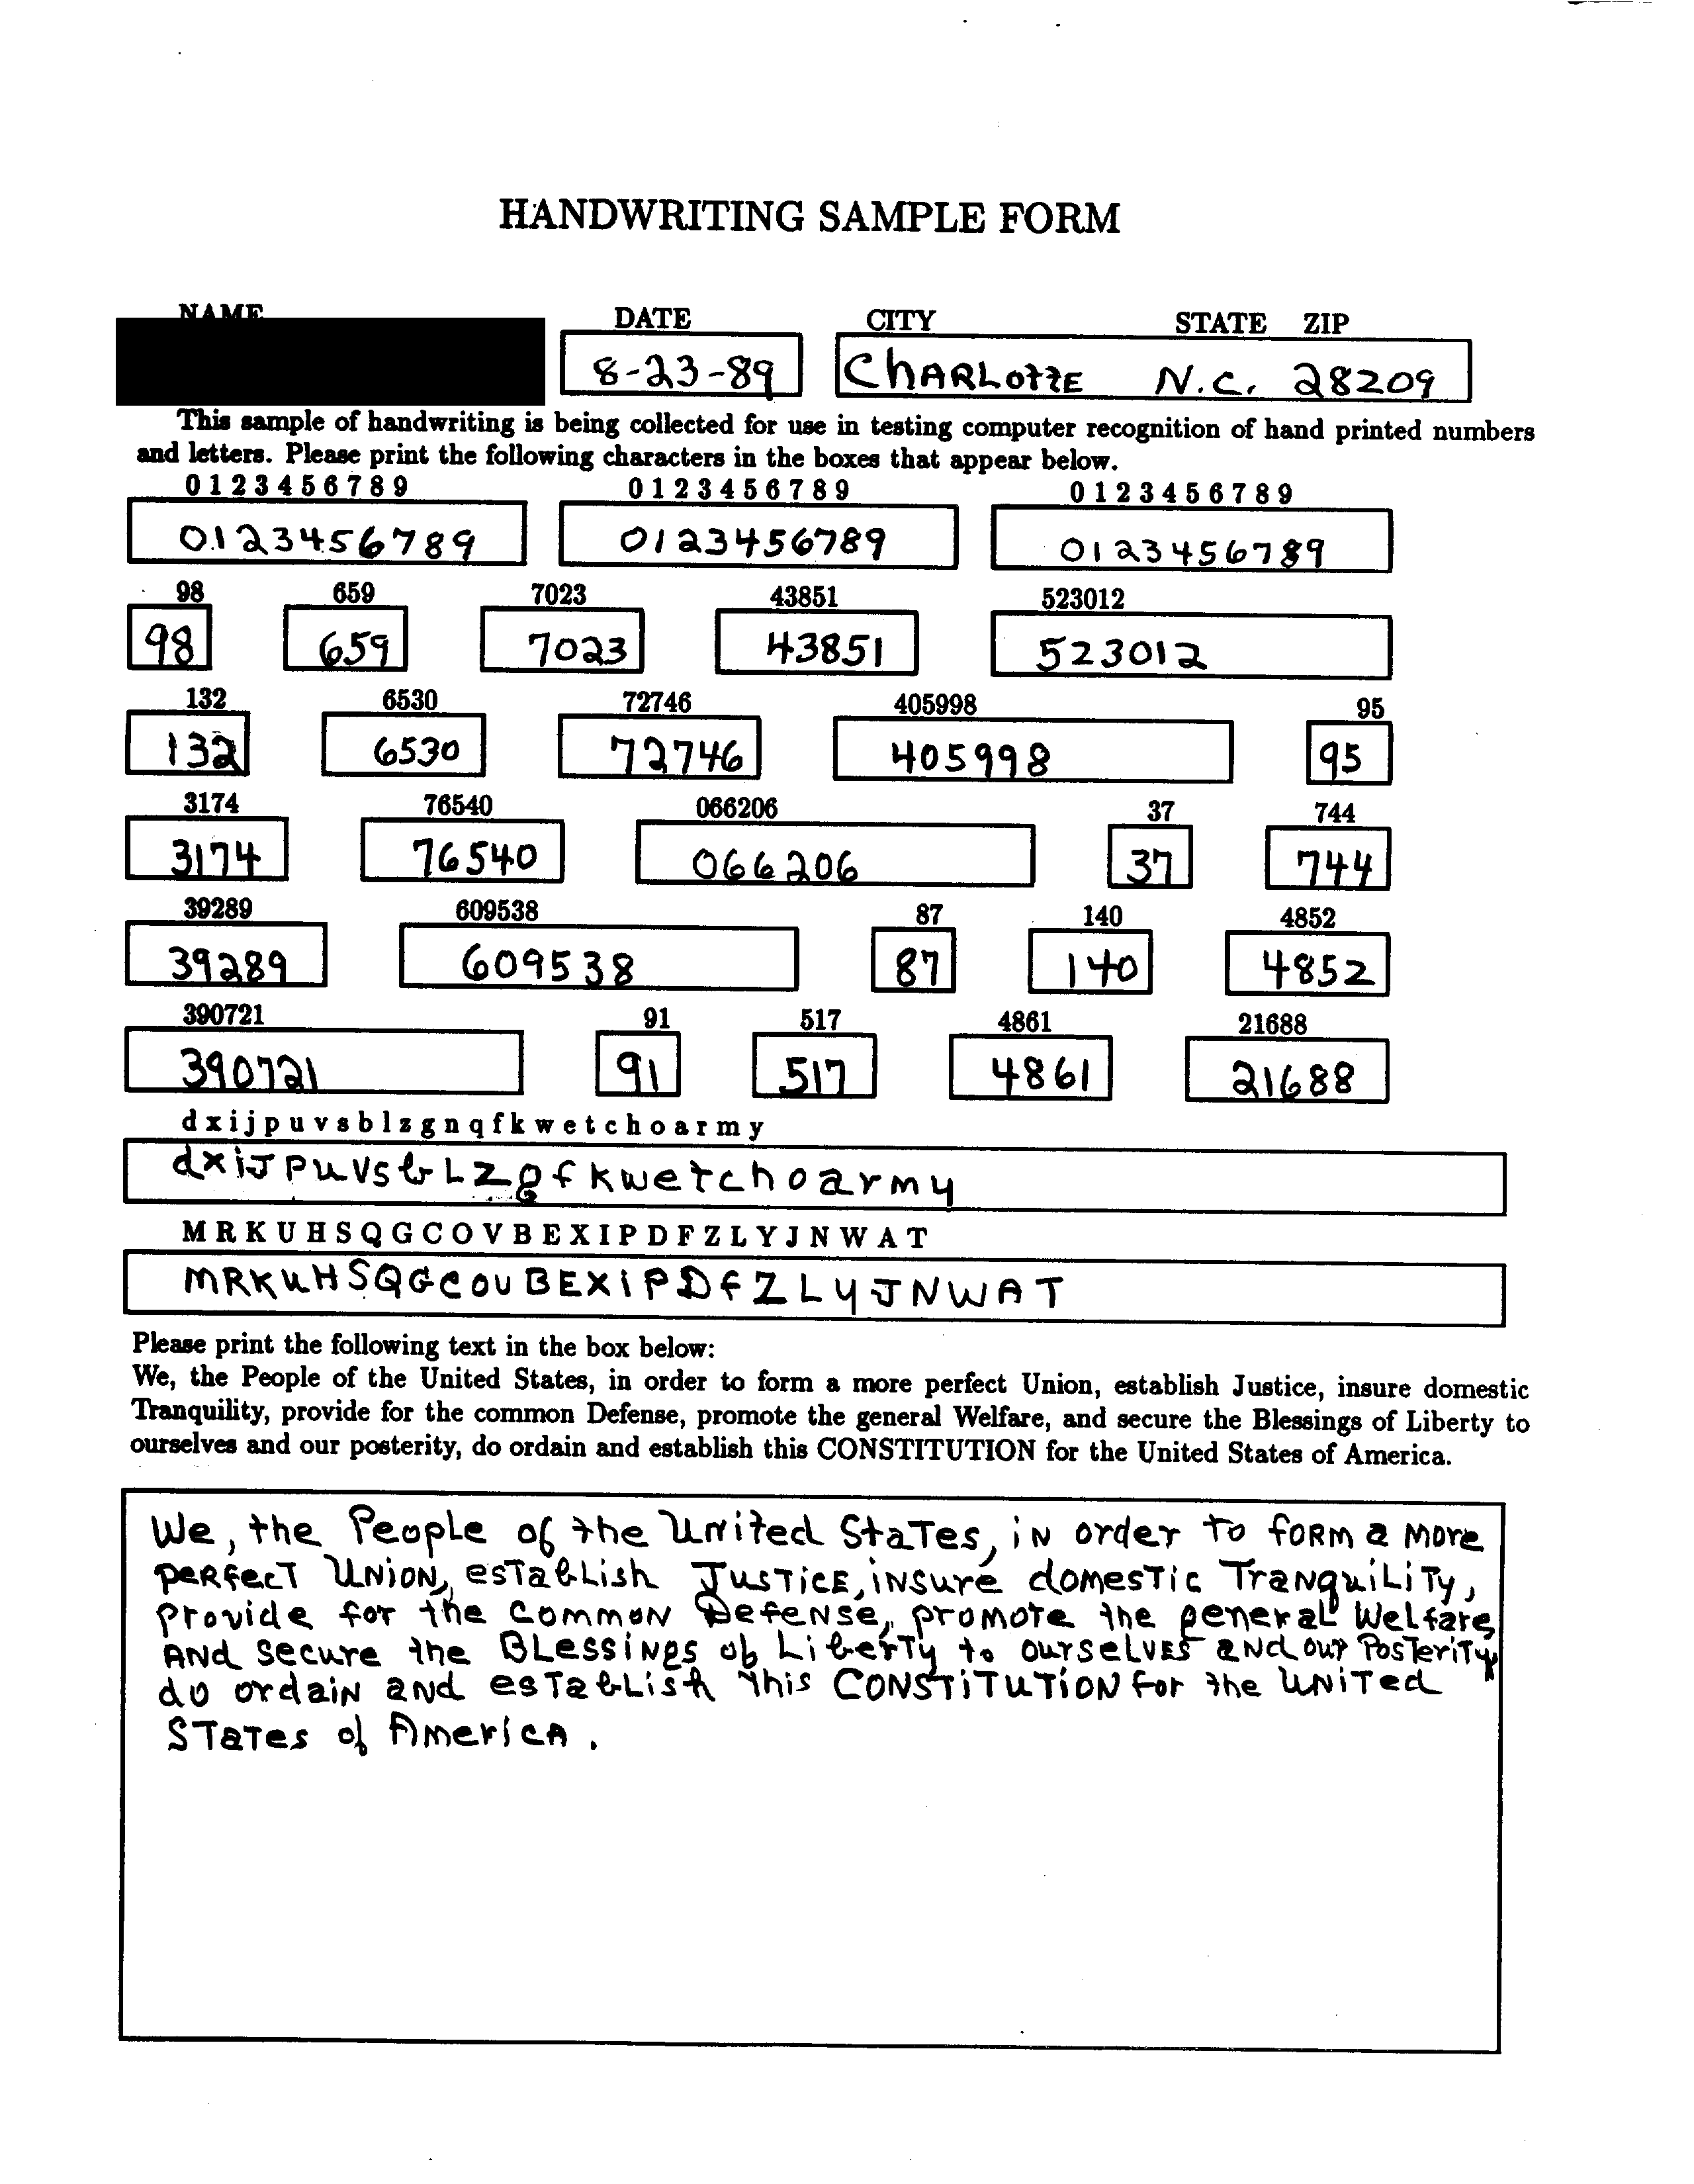 HANDWRITING SAMPLE FORM
NAME DATE CITY STATE ZIP
8-23-89 CHARLOTTE N.C. 28209
This sample of handwriting is being collected for use in testing computer recognition of hand printed numbers
and letters. Please print the following characters in the boxes that appear below.
0 1 2 3 4 5 6 7 8 9 0 1 2 3 4 5 6 7 8 9 0 1 2 3 4 5 6 7 8 9
0123456789 0123456789 0123456789
98 659 7023 43851 523012
98 659 7023 43851 523012
132 6530 72746 405998 95
132 6530 72746 405998 95
3174 76540 066206 37 744
3174 76540 066206 37 744
39289 609538 87 140 4852
39289 609538 87 140 4852
390721 91 517 4861 21688
390721 91 517 4861 21688
d x i j p u v s b l z g n q f k w e t c h o a r m y
dxiJPuVsbLZgfkwetchoarmy
M R K U H S Q G C O V B E X I P D F Z L Y J N W A T
MRKUHSQGCOVBEXiPDFZLYJNWAT
Please print the following text in the box below:
We, the People of the United States, in order to form a more perfect Union, establish Justice, insure domestic
Tranquility, provide for the common Defense, promote the general Welfare, and secure the Blessings of Liberty to
ourselves and our posterity, do ordain and establish this CONSTITUTION for the United States of America.
We, the People of the United StaTes, iN order To foRM a More
peRfecT UNiON, esTabLish JusTicE, iNsure domesTic TraNquiLiTy,
Provide for the CommoN DefeNse, proMoTe the generaL Welfare,
ANd Secure the BLessiNgs of LiberTy to ourseLvEs aNd our PosTeriTy,
do ordaiN aNd esTabLish This CONSTiTUTiON for the UNiTed
STaTes of AmericA.